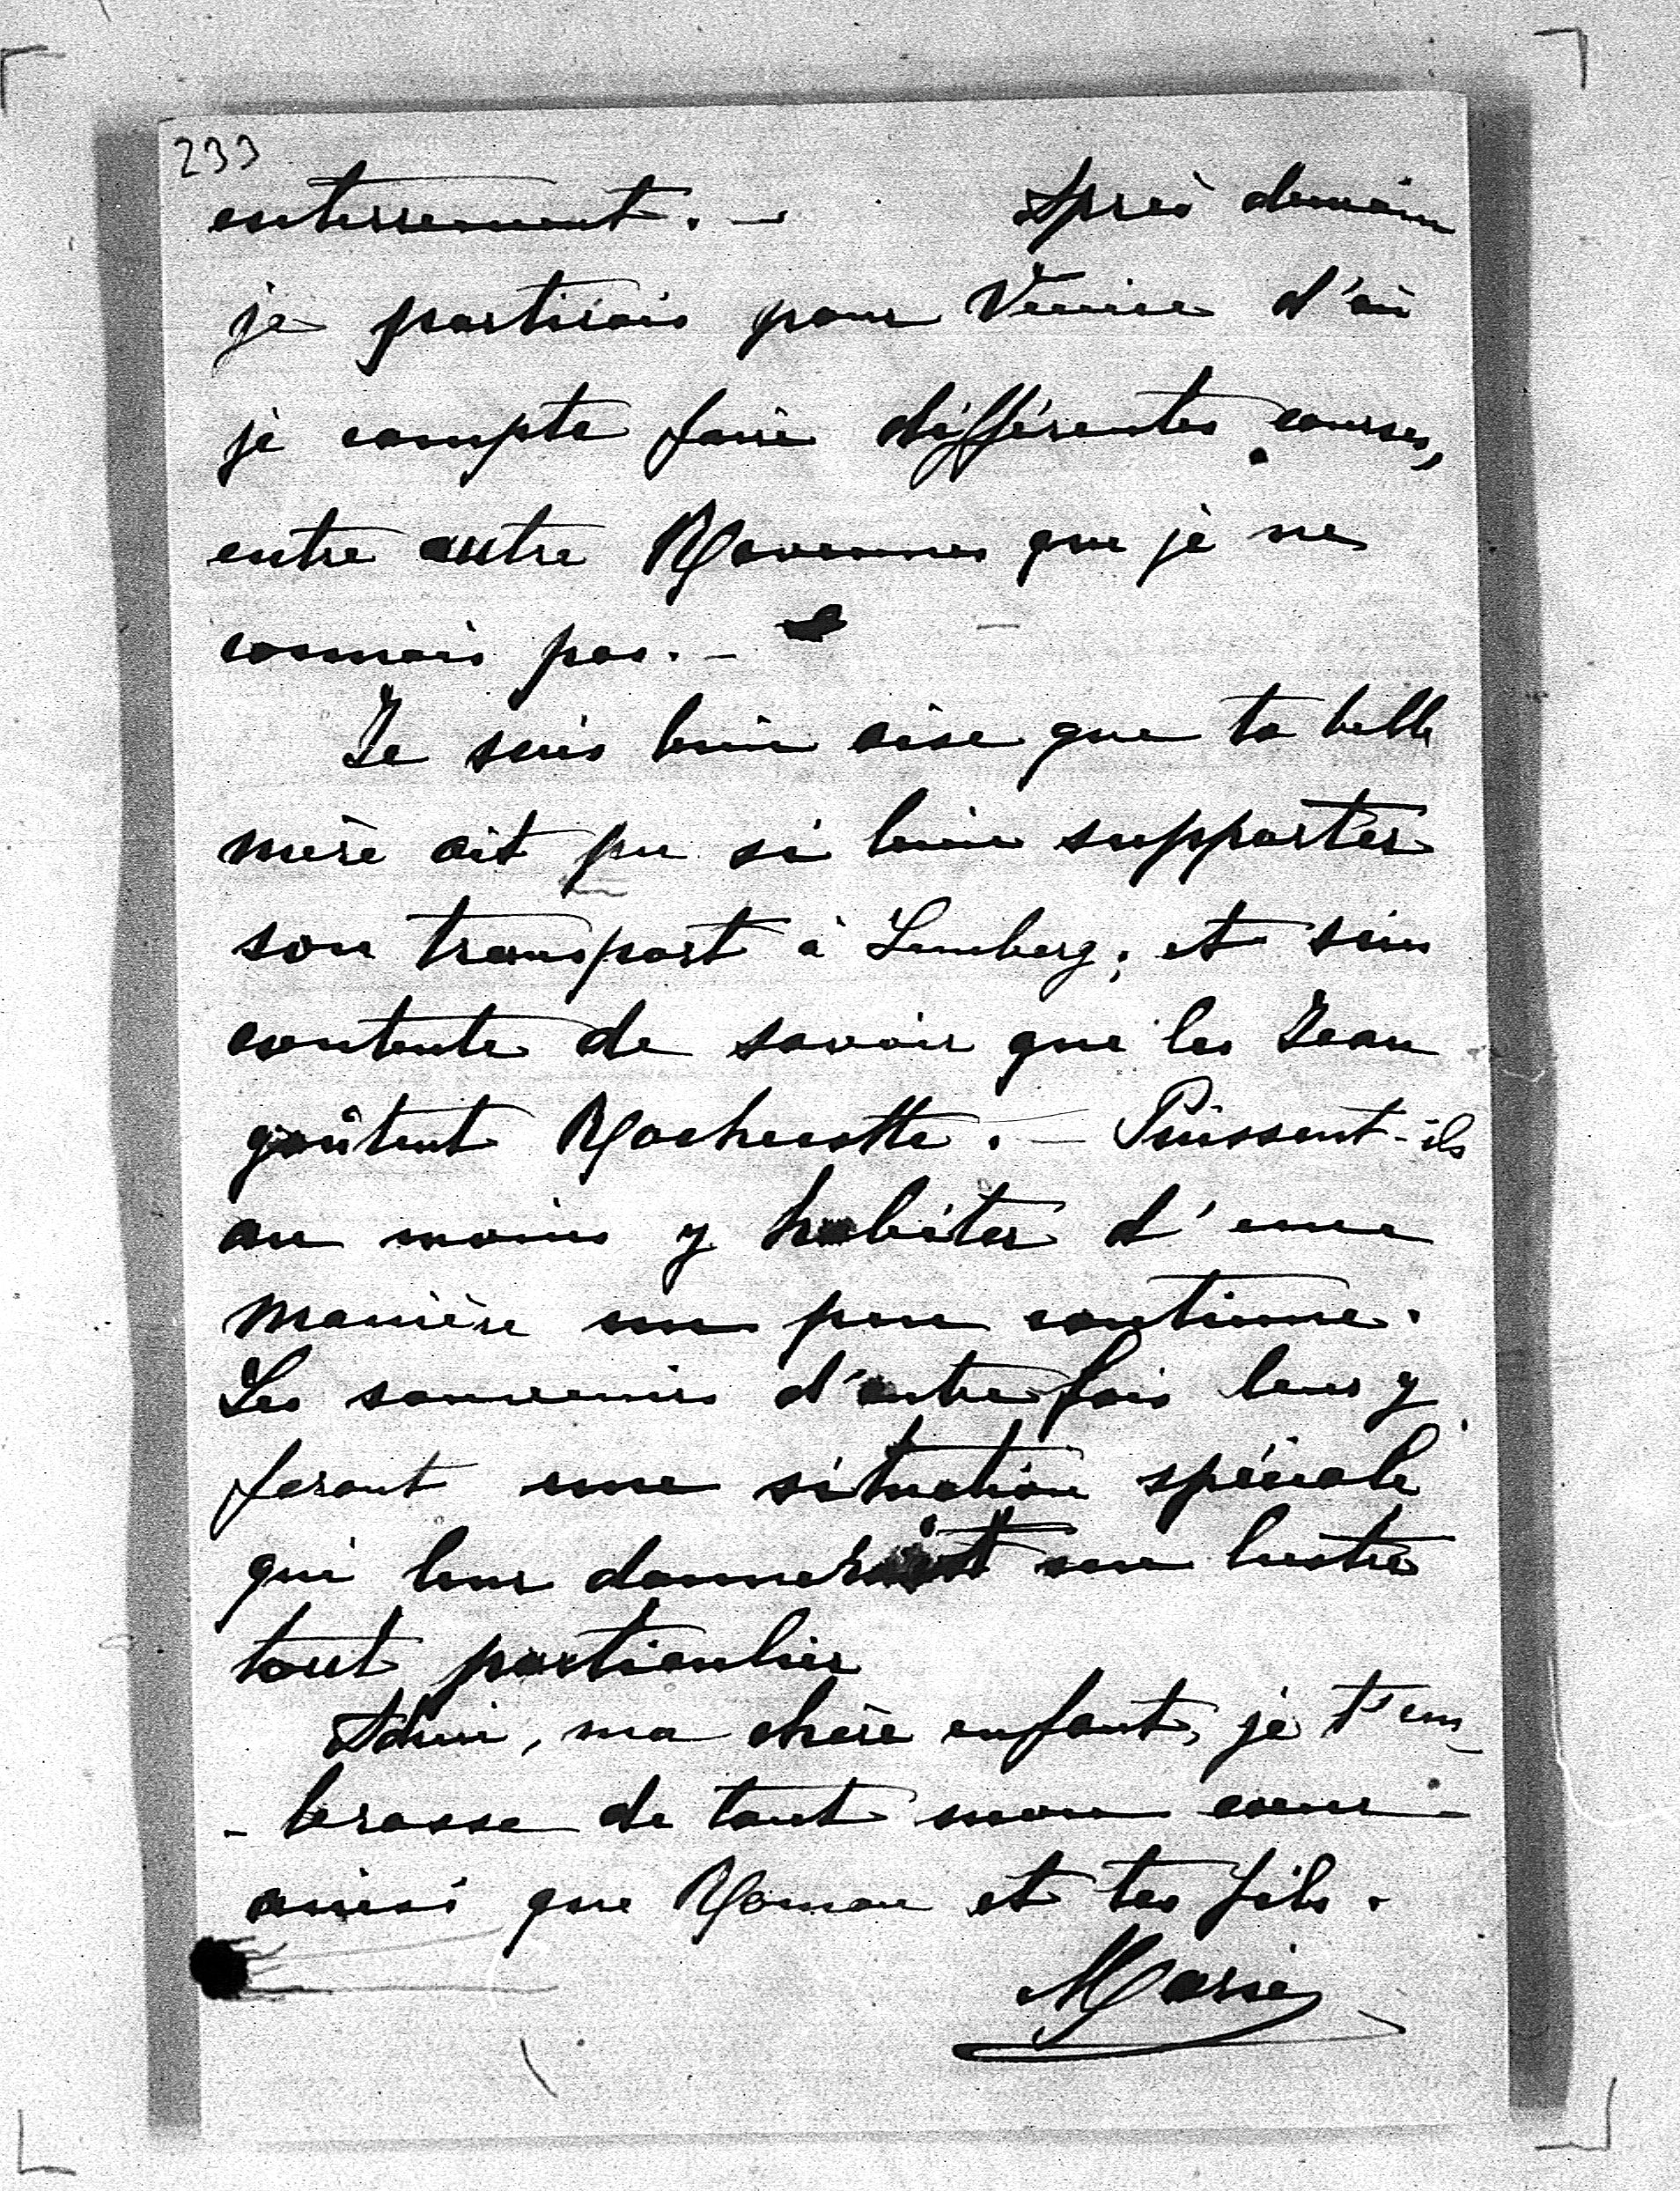 233
enterrement. — Après demain
je partirais pour Venise d'où
je compte faire différentes courses,
entre autre Ravennes que je ne
connais pas. —
Je suis bien aise que ta belle
mère ait pu si bien supporter
son transport à Lemberg, et suis
contente de savoir que les Jean
goûtent Rochecotte. — Puissent-ils
au moins y habiter d'une
manière un peu continue.
Les souvenirs d'autrefois leur y
feront une situation spéciale
qui leur donnerait un lustre
tout particulier
Adieu, ma chère enfant, je t'em-
-brasse de tout mon coeur -
ainsi que Roman et tes fils.
Marie